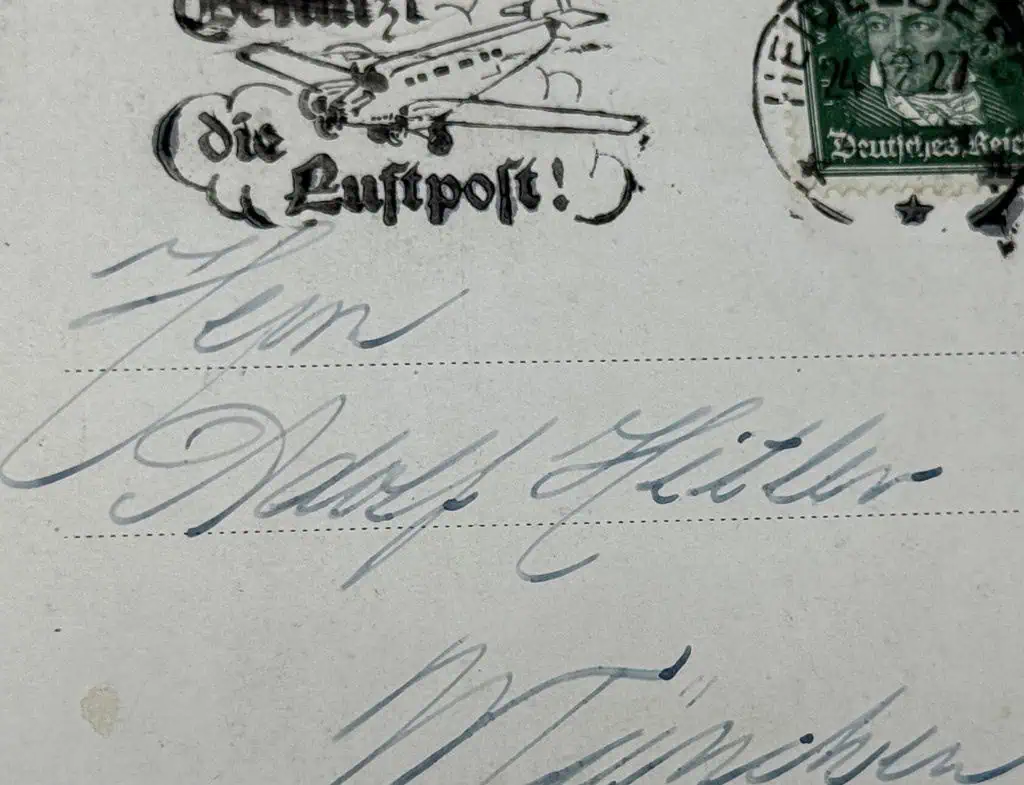 Benutzt
die
Luftpost!
HEIDELBERG
24 27
Deutsches Reich
Herrn
Adolf Hitler
München